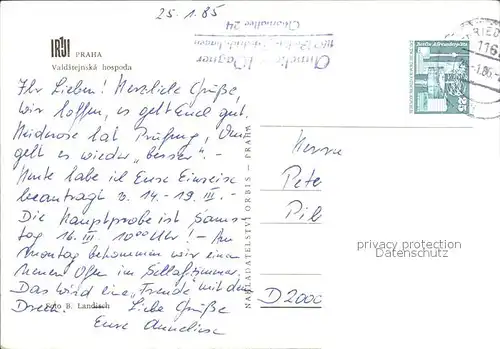 25.1.85
PRAHA
Valdštejnská hospoda
Ihr Lieben! Herzliche Grüße,
wir hoffen, es geht Euch gut.
Heiderose hat Prüfung,
geht es wieder „besser“. –
Heute habe ich Eure Einreise
beantragt v. 14. – 19. III. –
Die Hauptprobe ist Sams-
tag 16. III. 10⁰⁰ Uhr! – Am
Montag bekommen wir einen
neuen Ofen im Schlafzimmer.
Das wird eine „Freude“ mit dem
Dreck! Liebe Grüße
Eure Anneliese
Foto B. Landisch
NAKLADATELSTVÍ ORBIS – PRAHA
116
Herrn
Pete
Pil
D 2000
privacy protection
Datenschutz